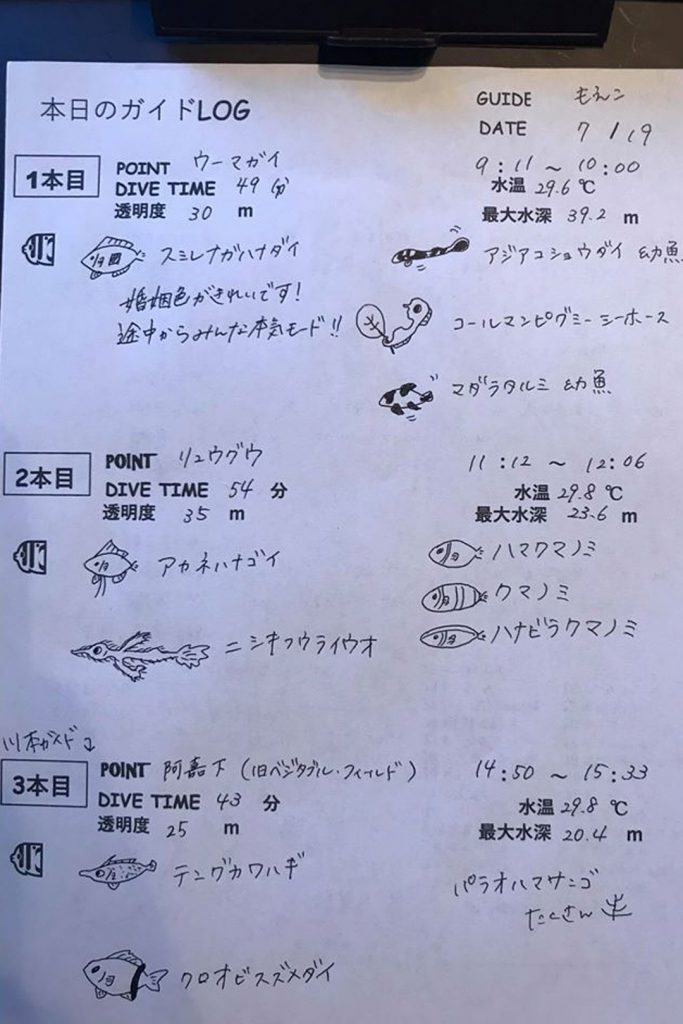 本日のガイドLOG
GUIDE もえこ
DATE 7/19
1本目
POINT ウーマガイ
9:11〜10:00
DIVE TIME 49 分
水温 29.6 ℃
透明度 30 m
最大水深 39.2 m
スミレナガハナダイ
婚姻色がきれいです!
途中からみんな本気モード!!
アジアコショウダイ 幼魚
コールマンピグミーシーホース
マダラタルミ 幼魚
2本目
POINT リュウグウ
11:12〜12:06
DIVE TIME 54 分
水温 29.8 ℃
透明度 35 m
最大水深 23.6 m
アカネハナゴイ
ニシキフウライウオ
ハマクマノミ
クマノミ
ハナビラクマノミ
川本ガイド
3本目
POINT 阿嘉下(旧ベジタブル・フィールド)
14:50〜15:33
DIVE TIME 43 分
水温 29.8 ℃
透明度 25 m
最大水深 20.4 m
テングカワハギ
クロオビスズメダイ
パラオハマサンゴ
たくさん